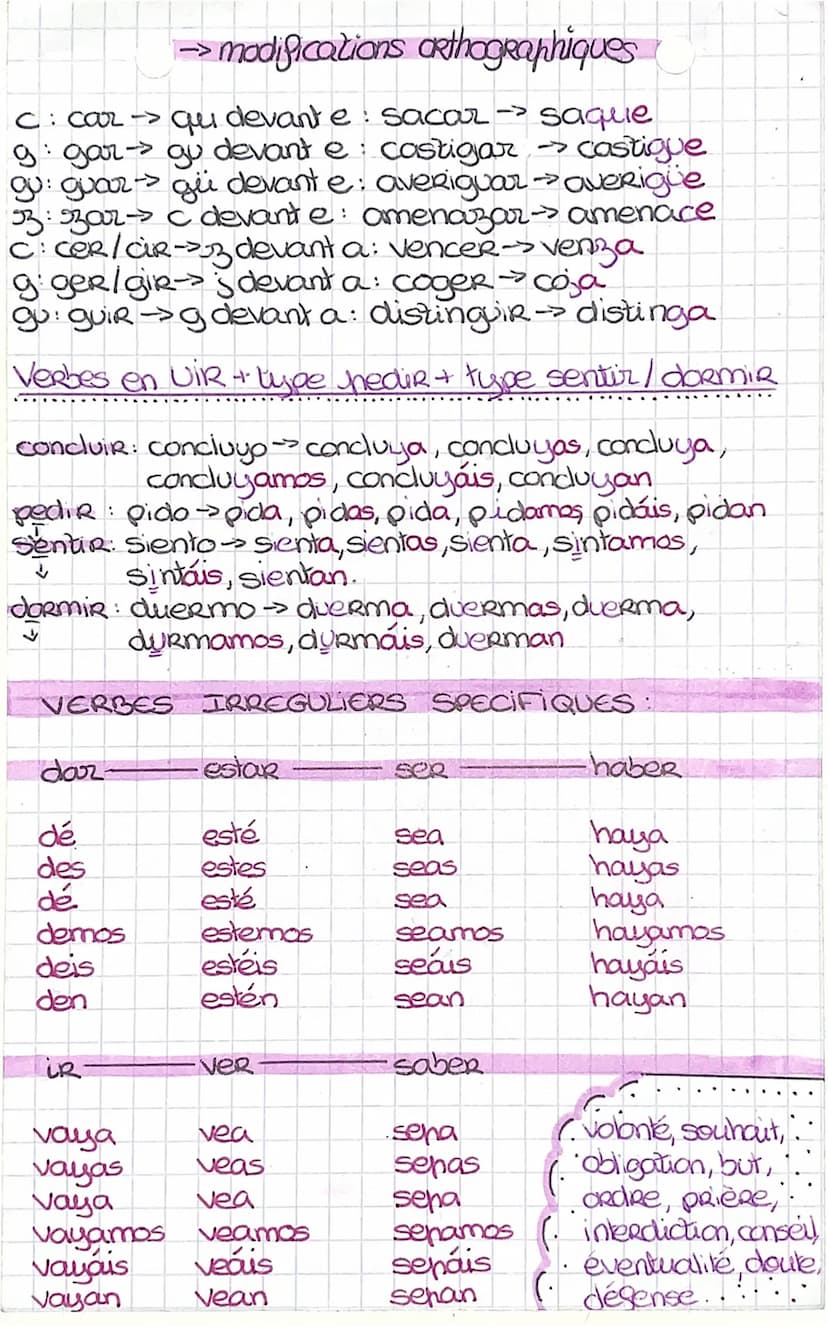 → modifications orthographiques
c : car → qu devant e : sacar → saque
g : gar → gu devant e : castigar → castigue
gu : guar → gü devant e : averiguar → averigüe
z : zar → c devant e : amenazar → amenace
c : cer/cir → z devant a : vencer → venza
g : ger/gir → j devant a : coger → coja
gu : guir → g devant a : distinguir → distinga
Verbes en UIR + type pedir + type sentir / dormir
concluir : concluyo → concluya, concluyas, concluya,
concluyamos, concluyáis, concluyan
pedir : pido → pida, pidas, pida, pidamos, pidáis, pidan
sentir : siento → sienta, sientas, sienta, sintamos,
↓ sintáis, sientan.
dormir : duermo → duerma, duermas, duerma,
↓ durmamos, durmáis, duerman
VERBES IRREGULIERS SPECIFIQUES :
dar — estar — ser — haber
dé esté sea haya
des estes seas hayas
dé esté sea haya
demos estemos seamos hayamos
deis estéis seáis hayáis
den estén sean hayan
ir — ver — saber
vaya vea sepa
vayas veas sepas
vaya vea sepa
vayamos veamos sepamos
vayáis veáis sepáis
vayan vean sepan
volonté, souhait,
obligation, but,
ordre, prière,
interdiction, conseil,
éventualité, doute,
défense...